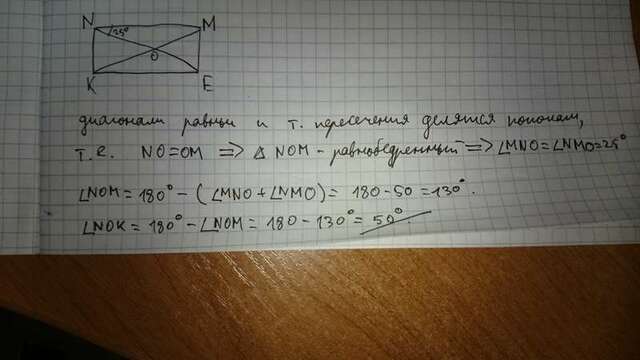 N M
25°
O
K E
диагонали равны и т. пересечения делятся пополам,
т.е. NO=OM => △ NOM - равнобедренный => ∠MNO=∠NMO=25°
∠NOM=180°-(∠MNO+∠NMO)=180-50=130°.
∠NOK=180°-∠NOM=180-130°=50°.